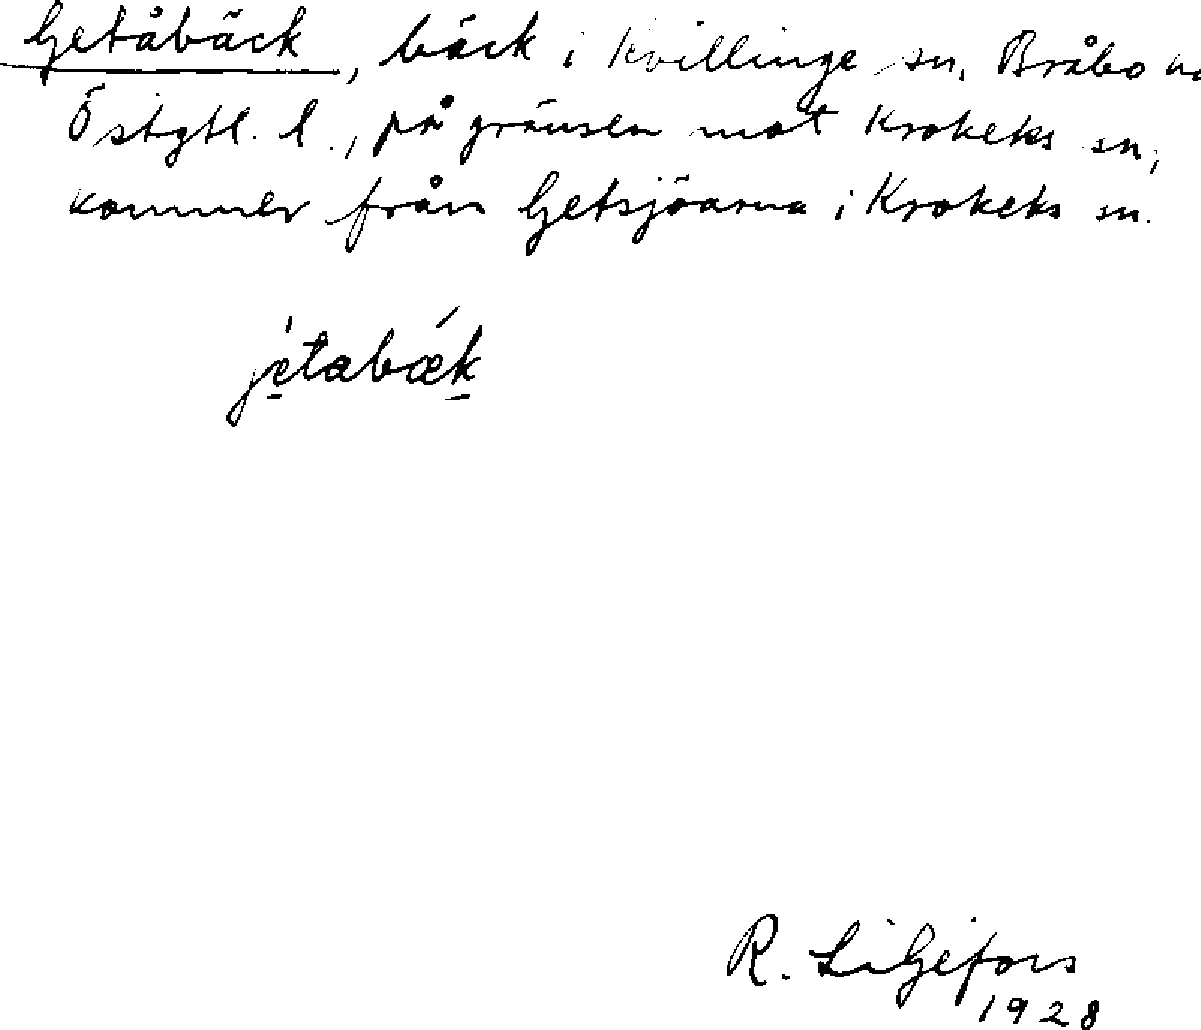 Getåbäck, bäck i Kvillinge sn, Bråbo
Östgtl. l., på gränsen mot Krokeks sn,
kommer från Getsjöarna i Krokeks sn.
jètabæ´k
R. Liljefors
1928